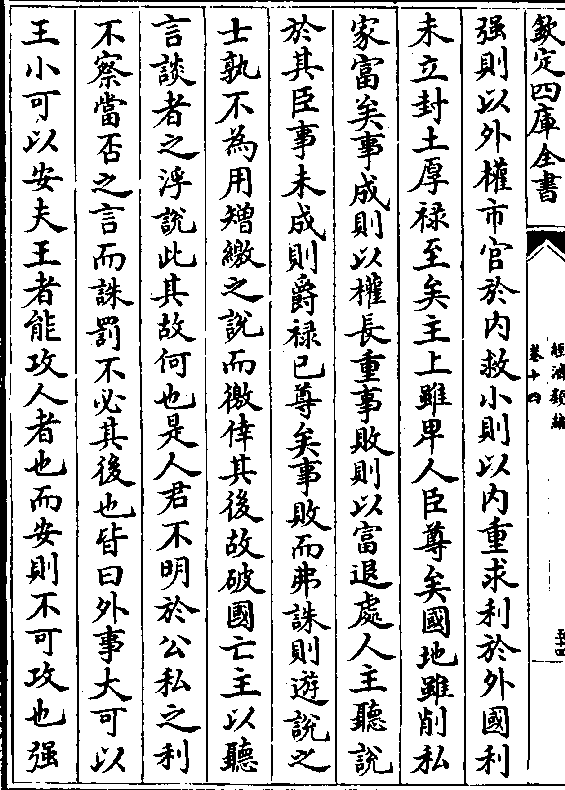 欽定四庫全書
經濟類編
卷十四
五十四
强則以外權市官於内救小則以内重求利於外國利
未立封土厚禄至矣主上雖卑人臣尊矣國地雖削私
家富矣事成則以權長重事敗則以富退處人主聽説
於其臣事未成則爵禄已尊矣事敗而弗誅則遊説之
士孰不為用矰繳之説而徼倖其後故破國亡主以聽
言談者之浮説此其故何也是人君不明於公私之利
不察當否之言而誅罰不必其後也皆曰外事大可以
王小可以安夫王者能攻人者也而安則不可攻也强